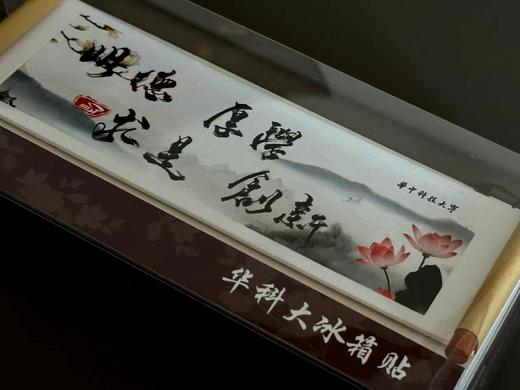 明德 厚學
求是 創新
華中科技大學
华科大冰箱贴